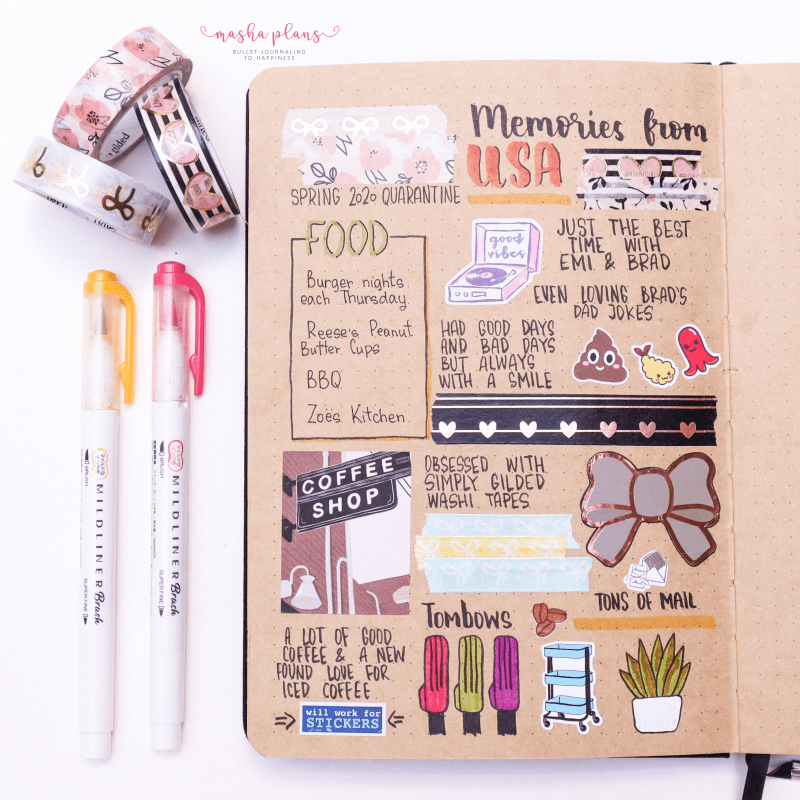 masha plans
BULLET JOURNALING
TO HAPPINESS
Memories from
USA
SPRING 2020 QUARANTINE
FOOD
Burger nights
each Thursday
Reese's Peanut
Butter Cups
BBQ
Zoës Kitchen
good
vibes
JUST THE BEST
TIME WITH
EMI & BRAD
EVEN LOVING BRAD'S
DAD JOKES
HAD GOOD DAYS
AND BAD DAYS
BUT ALWAYS
WITH A SMILE
COFFEE
SHOP
OBSESSED WITH
SIMPLY GILDED
WASHI TAPES
TONS OF MAIL
A LOT OF GOOD
COFFEE & A NEW
FOUND LOVE FOR
ICED COFFEE
will work for
STICKERS
Tombows
BRUSH
MILDLINER Brush
SUPER FINE
BRUSH
ZEBRA
MILDLINER Brush
SUPER FINE
gilded